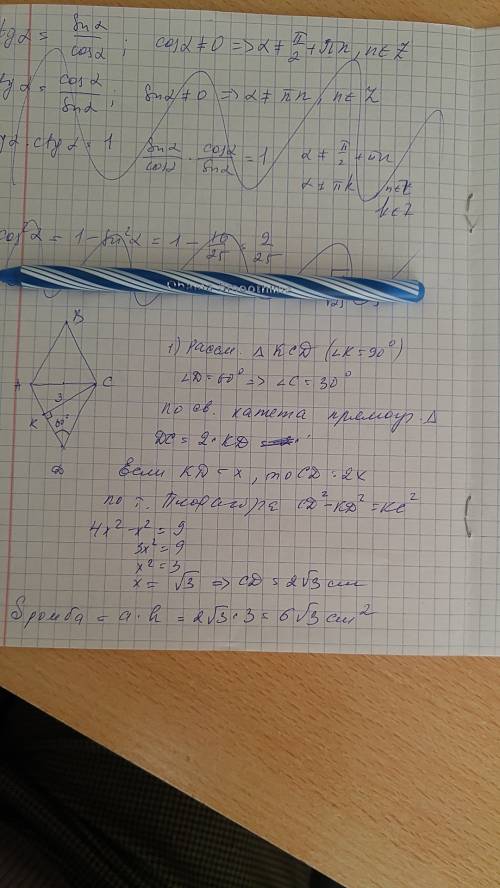 tgα = sinα/cosα ; cosα ≠ 0 => α ≠ π/2 + πn, n∈Z
ctgα = cosα/sinα ; sinα ≠ 0 => α ≠ πn, n∈Z
tgα · ctgα = 1 sinα/cosα · cosα/sinα = 1 α ≠ π/2 + πn
α ≠ πk n∈Z
k∈Z
cos²α = 1 - sin²α = 1 - 16/25 = 9/25
B
A
C
3
K
60°
D
1) Рассм. △ KCD (∠K=90°)
∠D=60° => ∠C=30°
по св. катета прямоуг. △
DC = 2·KD
Если KD = x, то CD = 2x
по т. Пифагора CD² - KD² = KC²
4x² - x² = 9
3x² = 9
x² = 3
x = √3 => CD = 2√3 cм
Sромба = a·h = 2√3·3 = 6√3 см²